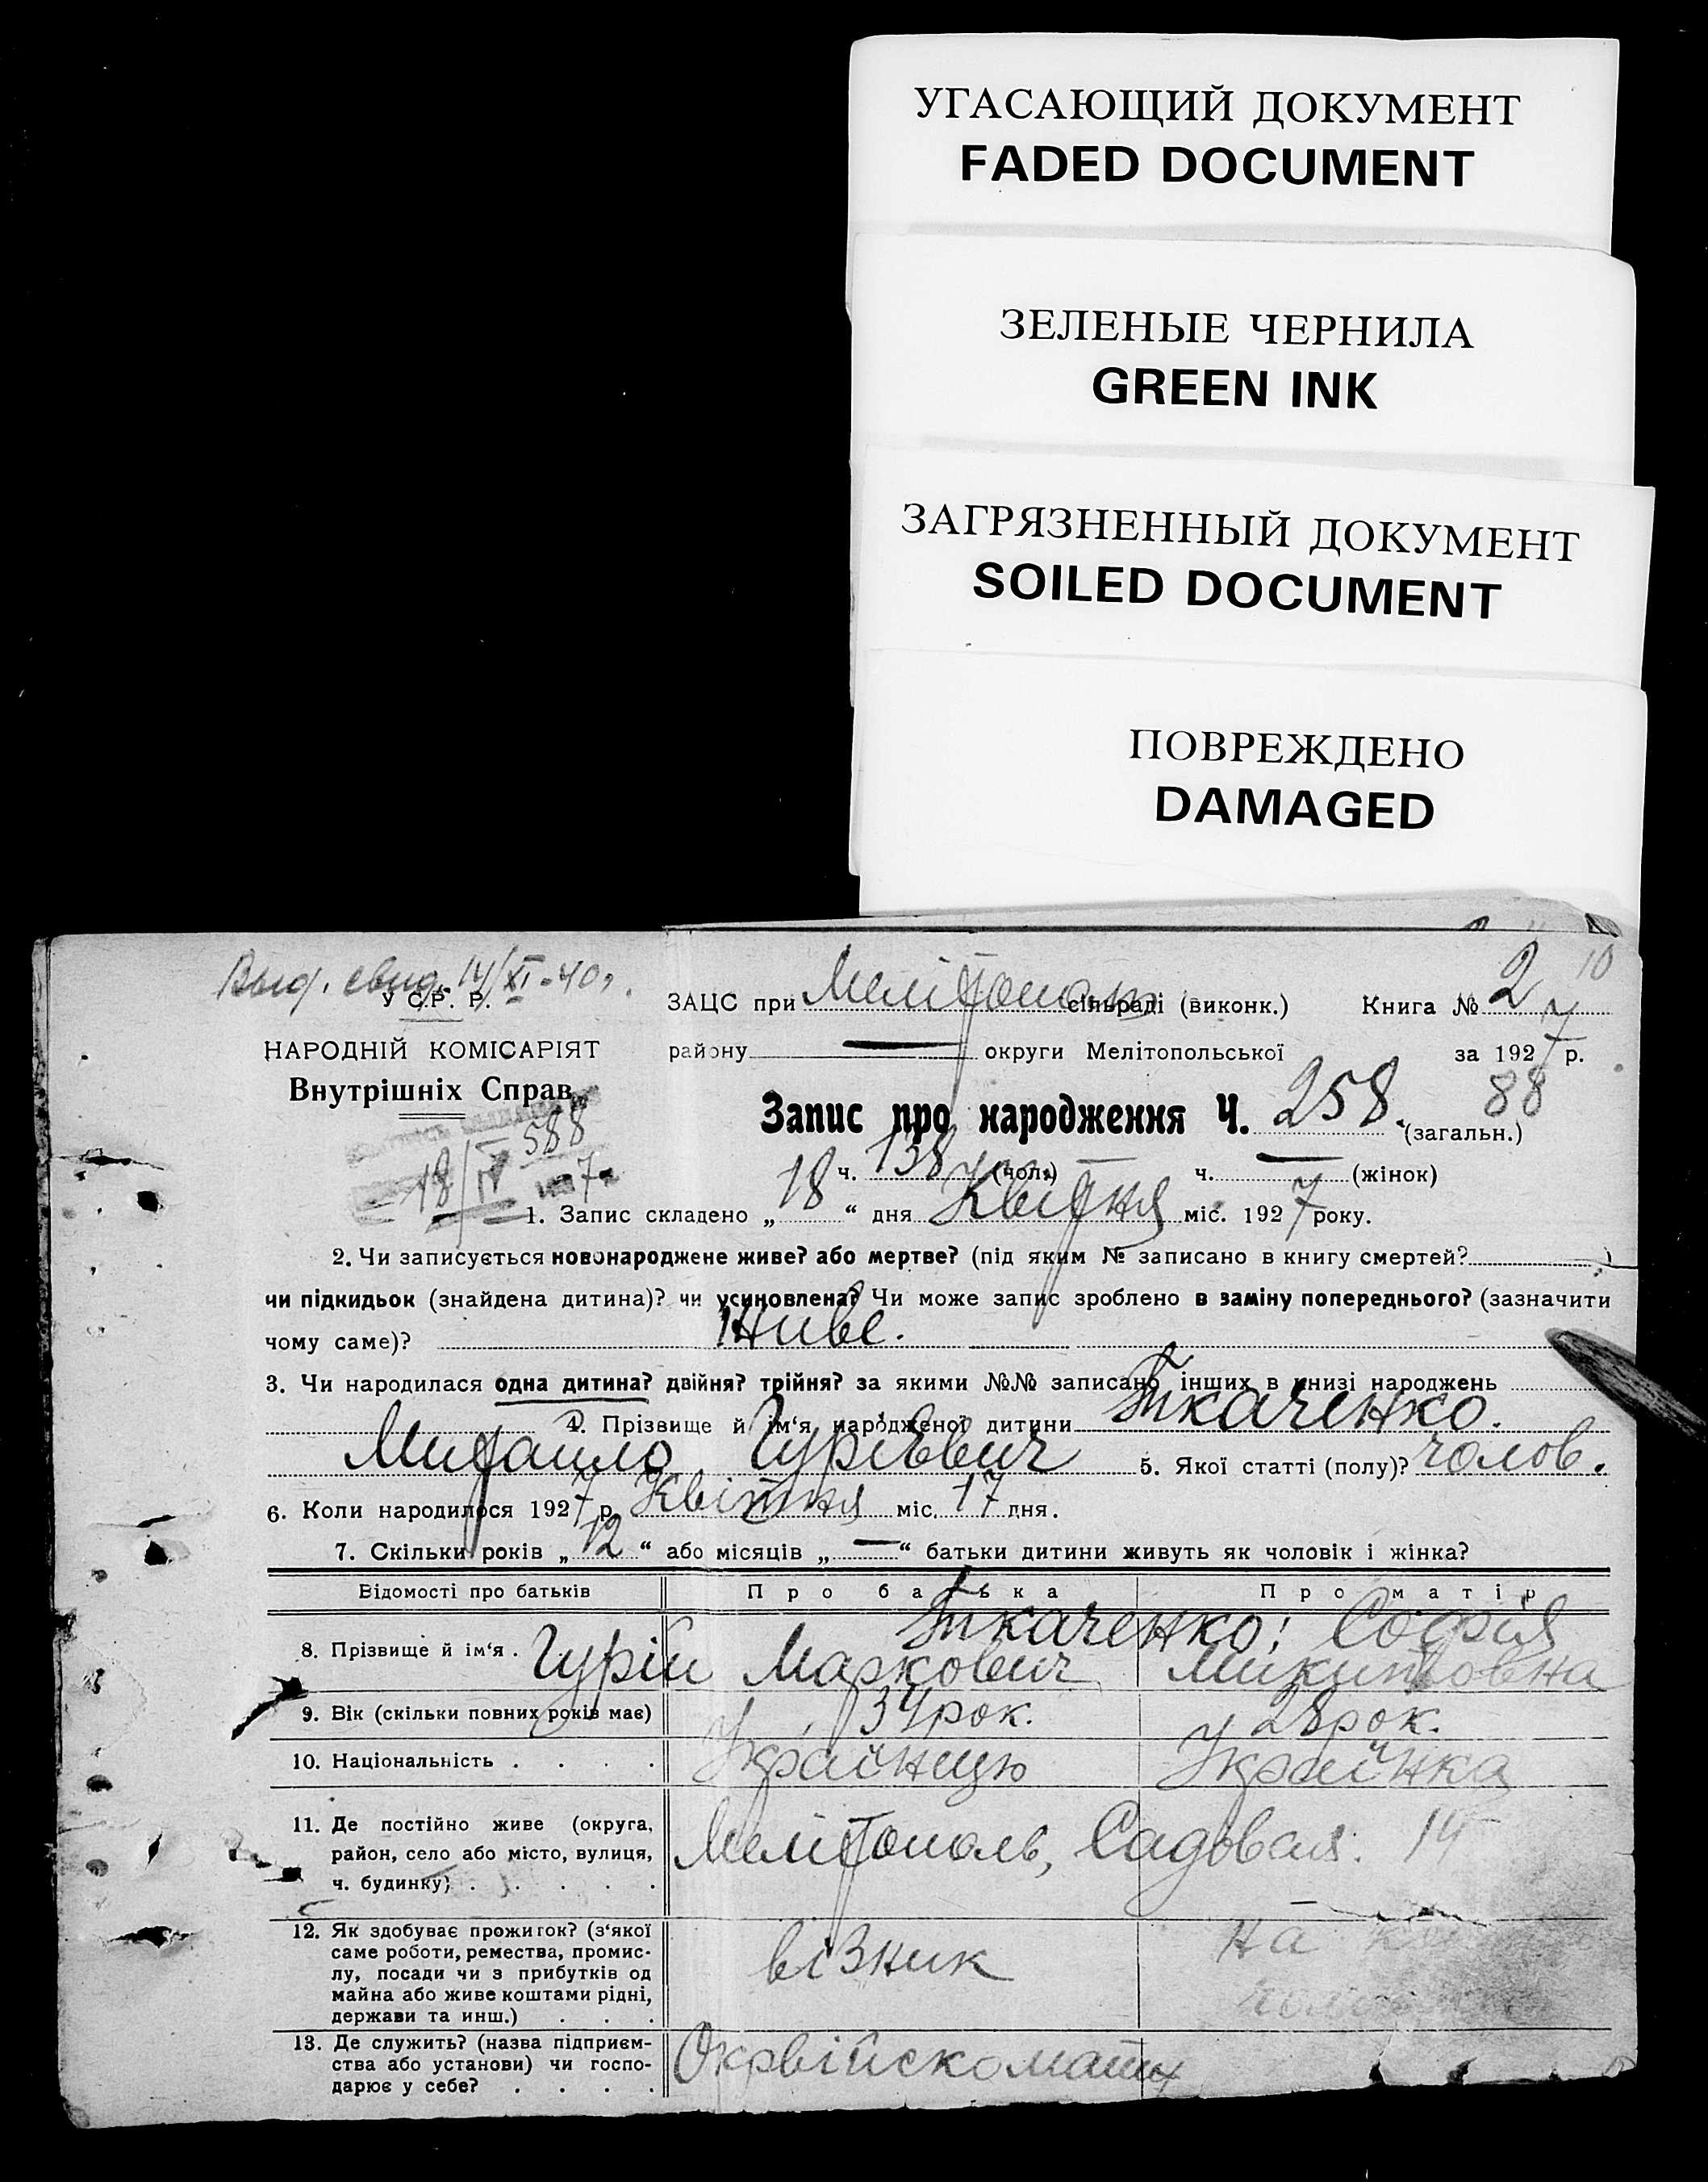 УГАСАЮЩИЙ ДОКУМЕНТ
FADED DOCUMENT
ЗЕЛЕНЫЕ ЧЕРНИЛА
GREEN INK
ЗАГРЯЗНЕННЫЙ ДОКУМЕНТ
SOILED DOCUMENT
ПОВРЕЖДЕНО
DAMAGED
Выд. свид. 14/XI-40г.
У С.Р. Р.
НАРОДНІЙ КОМІСАРІЯТ
Внутрішніх Справ
588
18/IV 1927
10
ЗАЦС при Мелітопольск сільраді (виконк.) Книга № 2
району — округи Мелітопольської за 1927 р.
Запис про народження Ч. 258. (загальн.) 88
ч. 138 (чол.) ч. — (жінок)
1. Запис складено „18“ дня Квітня міс. 1927 року.
2. Чи записується новонароджене живе? або мертве? (під яким № записано в книгу смертей?
чи підкидьок (знайдена дитина)? чи усиновлена? Чи може запис зроблено в заміну попереднього? (зазначити
чому саме)? Живе.
3. Чи народилася одна дитина? двійня? трійня? за якими №№ записано інших в книзі народжень
4. Прізвище й ім‘я народженої дитини Ткаченко.
Михайло Гурієвич 5. Якої статті (полу)? чолов.
6. Коли народилося 1927 р. Квітня міс. 17 дня.
7. Скільки років „12“ або місяців „—“ батьки дитини живуть як чоловік і жінка?
Відомості про батьків Про батька Про матір
8. Прізвище й ім‘я . Ткаченко: Софія
Гурій Маркович Микитовна
9. Вік (скільки повних років має) 34 рок. 28 рок.
10. Національність . . . . Українець Українка
11. Де постійно живе (округа,
район, село або місто, вулиця,
ч. будинку) . . . . . Мелітополь, Садовая. 14
12. Як здобуває прожиток? (з‘якої
саме роботи, ремества, промис-
лу, посади чи з прибутків од
майна або живе коштами рідні,
держави та инш.) . . . візник На
13. Де служить? (назва підприєм-
ства або установи) чи госпо-
дарює у себе? . . . . Окрвійскомати